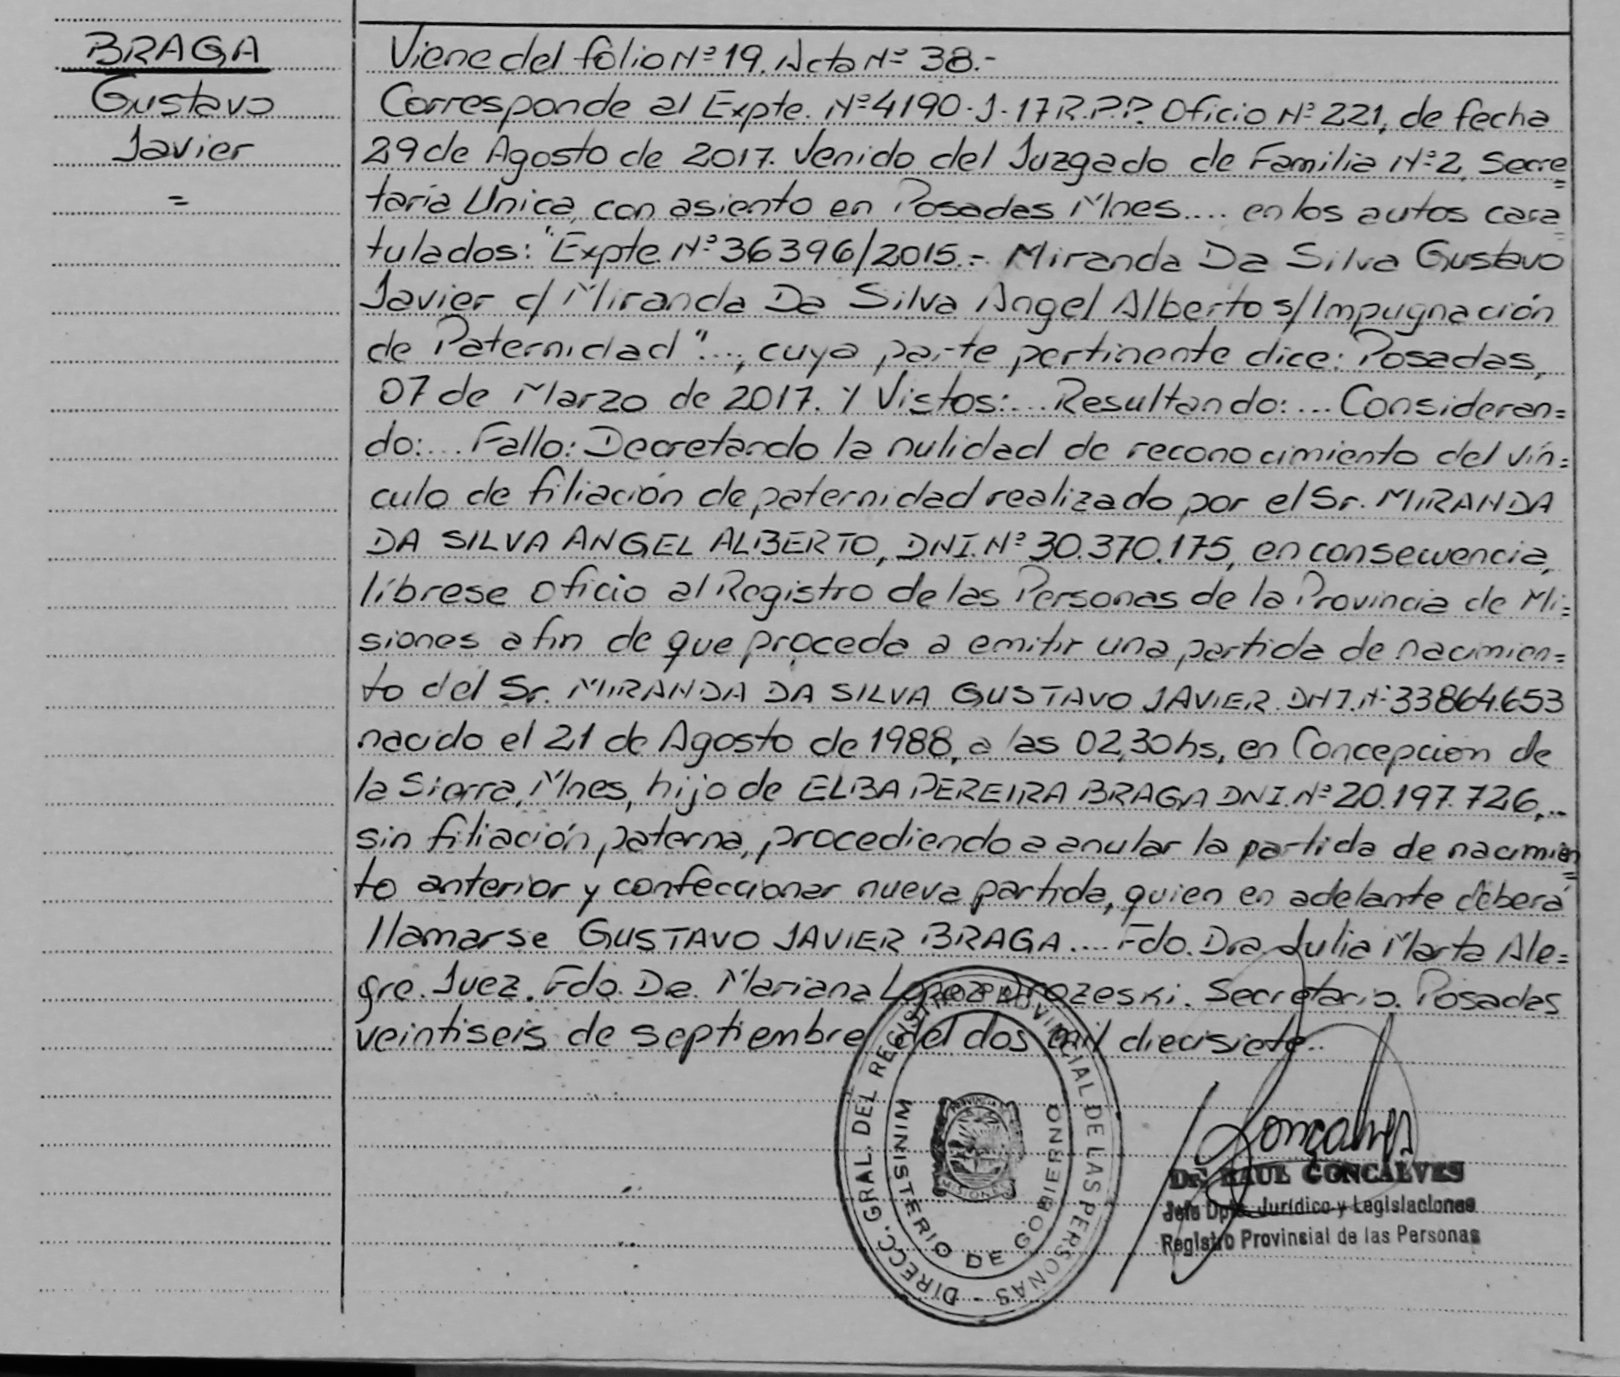 BRAGA
Gustavo
Javier
=
Viene del folio Nº 19. Acta Nº 38.-
Corresponde al Expte. Nº 4190-J-17 R.P.P. Oficio Nº 221, de fecha
29 de Agosto de 2017. Venido del Juzgado de Familia Nº 2, Secre=
taría Unica, con asiento en Posadas Mnes.... en los autos cara=
tulados: "Expte. Nº 36396/2015.- Miranda Da Silva Gustavo
Javier c/ Miranda Da Silva Angel Alberto s/ Impugnación
de Paternidad"..., cuya parte pertinente dice: Posadas,
07 de Marzo de 2017. Y Vistos:... Resultando:... Consideran=
do:... Fallo: Decretando la nulidad de reconocimiento del vín=
culo de filiación de paternidad realizado por el Sr. MIRANDA
DA SILVA ANGEL ALBERTO, DNI. Nº 30.370.175, en consecuencia,
líbrese oficio al Registro de las Personas de la Provincia de Mi=
siones a fin de que proceda a emitir una partida de nacimien=
to del Sr. MIRANDA DA SILVA GUSTAVO JAVIER. DNI. Nº 33864.653
nacido el 21 de Agosto de 1988, a las 02,30 hs, en Concepción de
la Sierra, Mnes, hijo de ELBA PEREIRA BRAGA DNI. Nº 20.197.726,...
sin filiación paterna, procediendo a anular la partida de nacimien=
to anterior y confeccionar nueva partida, quien en adelante deberá
llamarse GUSTAVO JAVIER BRAGA.... Fdo. Dra Julia Marta Ale=
gre. Juez. Fdo. Da. Mariana Lopez Drozeski. Secretaria. Posadas
veintiseis de septiembre del dos mil diecisiete.
DIRECC. GRAL. DEL REGISTRO PROVINCIAL DE LAS PERSONAS -
MINISTERIO DE GOBIERNO
PROVINCIA
MISIONES
Goncalves
Dr. RAUL GONCALVES
Jefe Dpto. Jurídico y Legislaciones
Registro Provincial de las Personas